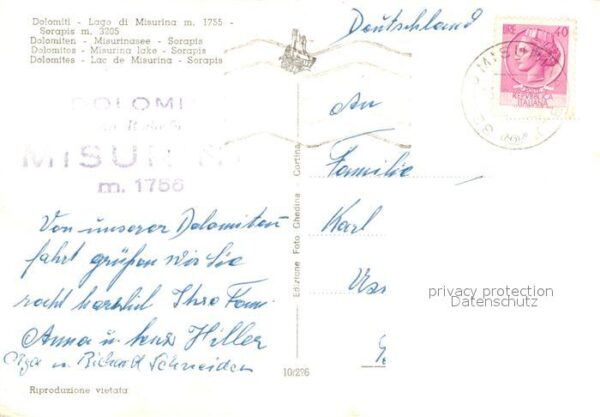 Dolomiti - Lago di Misurina m. 1755 -
Sorapis m. 3205
Dolomiten - Misurinasee - Sorapis
Dolomites - Misurina lake - Sorapis
Dolomites - Lac de Misurina - Sorapis
Deutschland
LIRE 40
REPVBBLICA
ITALIANA
MISURINA
DOLOMI
MISURIN
m. 1756
An
Familie
Karl
Von unserer Dolomiten
fahrt grüßen wir Sie
recht herzlich Ihre Fam.
Anna u. Hiller
Olga u. Richard Schneider
Edizione Foto Ghedina - Cortina
privacy protection
Datenschutz
10/226
Riproduzione vietata